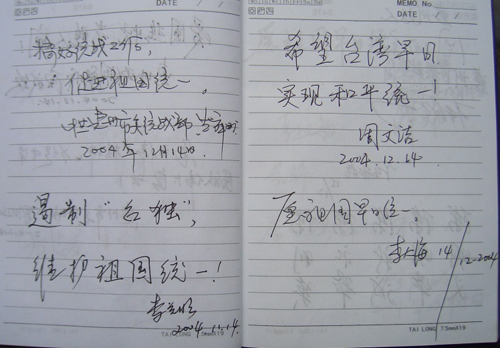 DATE
搞好统战工作,
促进祖国统一。
市委统战部
2004年12月14日.
遏制“台独”,
维护祖国统一!
2004.12.14.
MEMO No.
DATE
希望台湾早日
实现和平统一!
周文洁
2004.12.14
愿祖国早日统一.
李上海 14/12-2004
TAI LONG 7.5mmX19